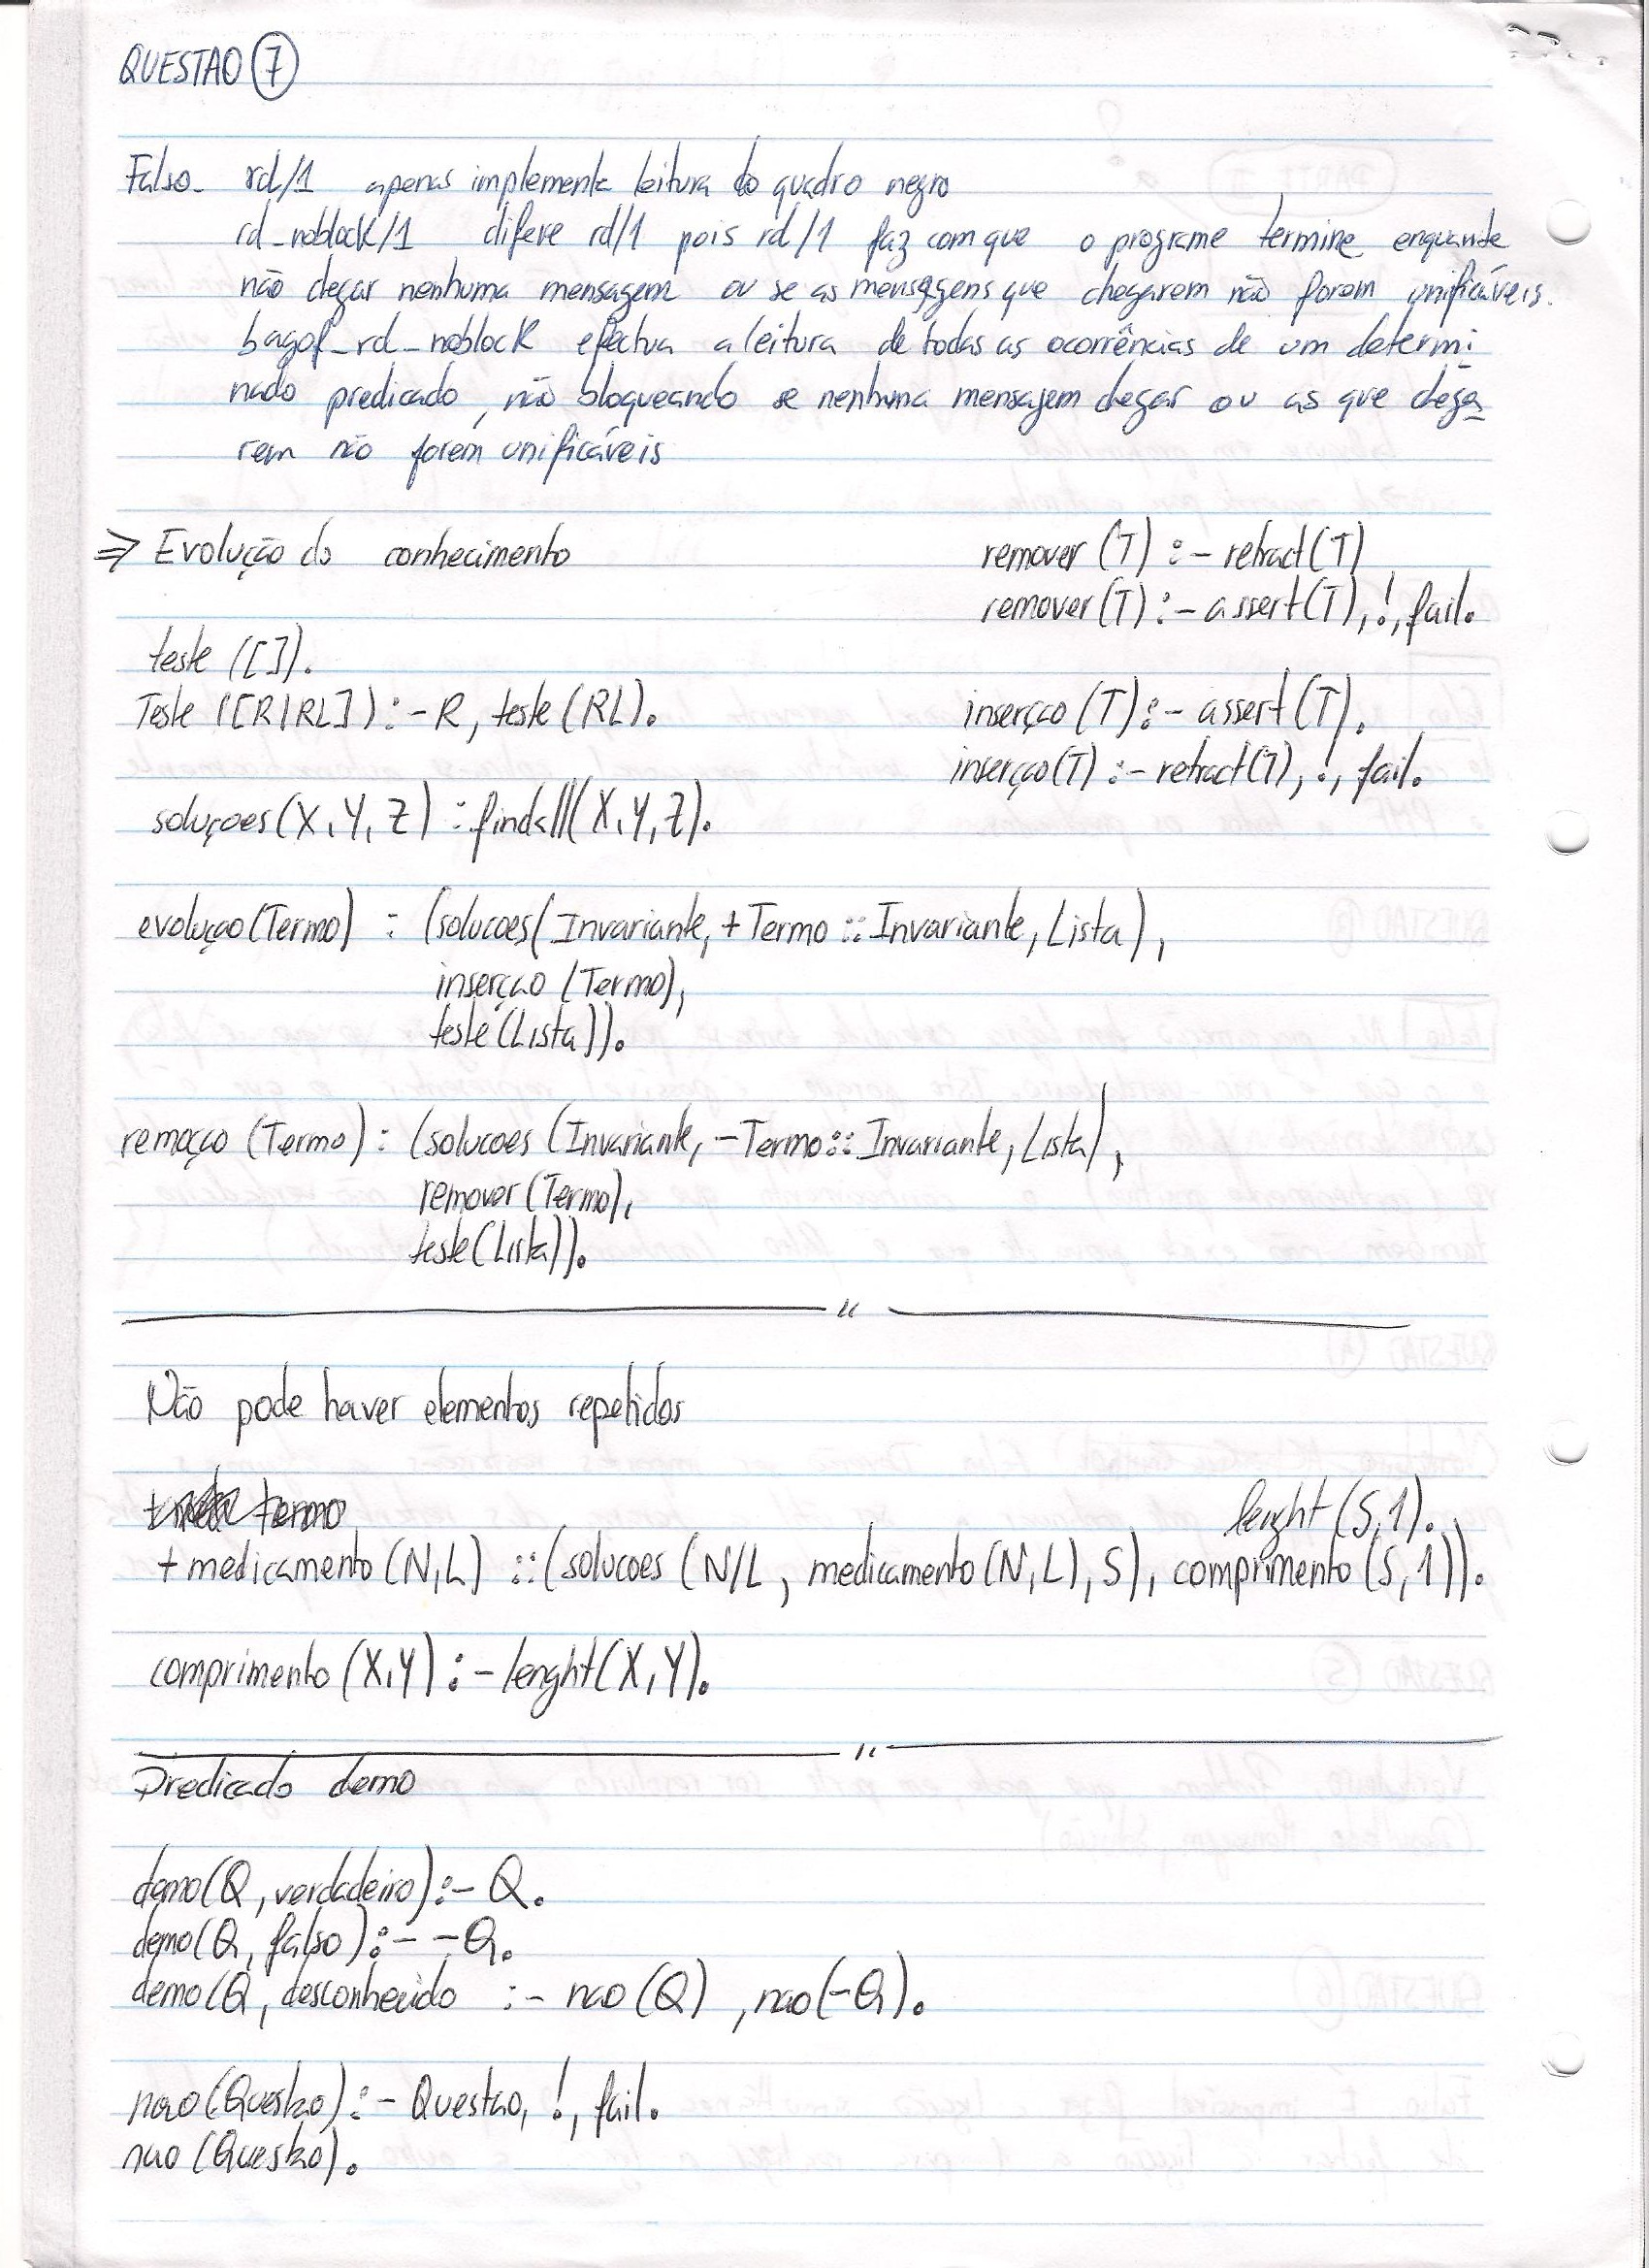 QUESTAO 7
Falso. rd/1 apenas implementa leitura do quadro negro
rd_noblock/1 difere rd/1 pois rd/1 faz com que o programe termine enquante
não chegar nenhuma mensagem ou se as mensagens que chegarem não forem unificáveis.
bagof_rd_noblock efectua a leitura de todas as ocorrências de um determi
nado predicado, não bloqueando se nenhuma mensagem chegar ou as que chega
rem não forem unificáveis
⇒ Evolução do conhecimento
remover (T) :- retract(T)
remover(T) :- assert(T), !, fail.
teste ([]).
Teste ([R|RL]) :- R, teste (RL).
inserçao (T) :- assert(T).
inserçao(T) :- retract(T), !, fail.
soluçoes(X, Y, Z) : findall(X, Y, Z).
evoluçao(Termo) : (solucoes(Invariante, +Termo :: Invariante, Lista),
inserçao (Termo),
teste(Lista)).
remoçao (Termo) : (solucoes (Invariante, -Termo :: Invariante, Lista),
remover (Termo),
teste(Lista)).
Não pode haver elementos repetidos
termo
lenght (S,1).
+ medicamento (N,L) :: (solucoes (N/L, medicamento (N,L), S), comprimento (S,1)).
comprimento (X,Y) :- lenght(X,Y).
Predicado demo
demo(Q, verdadeiro) :- Q.
demo(Q, falso) :- -Q.
demo(Q, desconhecido :- nao (Q), nao(-Q).
nao (Questao) :- Questao, !, fail.
nao (Questao).